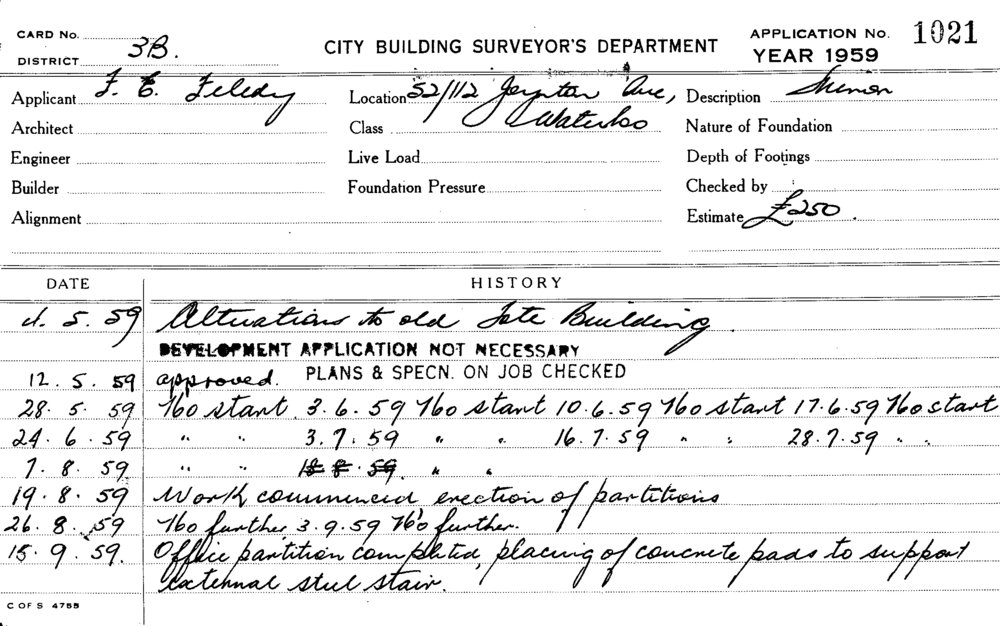 CARD No.
DISTRICT 3B.
CITY BUILDING SURVEYOR'S DEPARTMENT
APPLICATION No. 1021
YEAR 1959
Applicant F. E. Location 52/112 Joynton Ave, Description
Architect Class Waterloo Nature of Foundation
Engineer Live Load Depth of Footings
Builder Foundation Pressure Checked by
Alignment Estimate £250.
DATE HISTORY
4. 5. 59 Alterations to old Tote Building.
DEVELOPMENT APPLICATION NOT NECESSARY
12. 5. 59 approved. PLANS & SPECN. ON JOB CHECKED
28. 5. 59 No start. 3.6.59 No start 10.6.59 No start 17.6.59 No start
24. 6. 59 " " 3.7.59 " " 16.7.59 " " 28.7.59 " "
7. 8. 59 " " 18.8.59 " "
19. 8. 59 Work commenced erection of partitions
26. 8. 59 No further. 3.9.59 No further.
15. 9. 59. Office partition completed, placing of concrete pads to support
external steel stair.
C OF S 4755